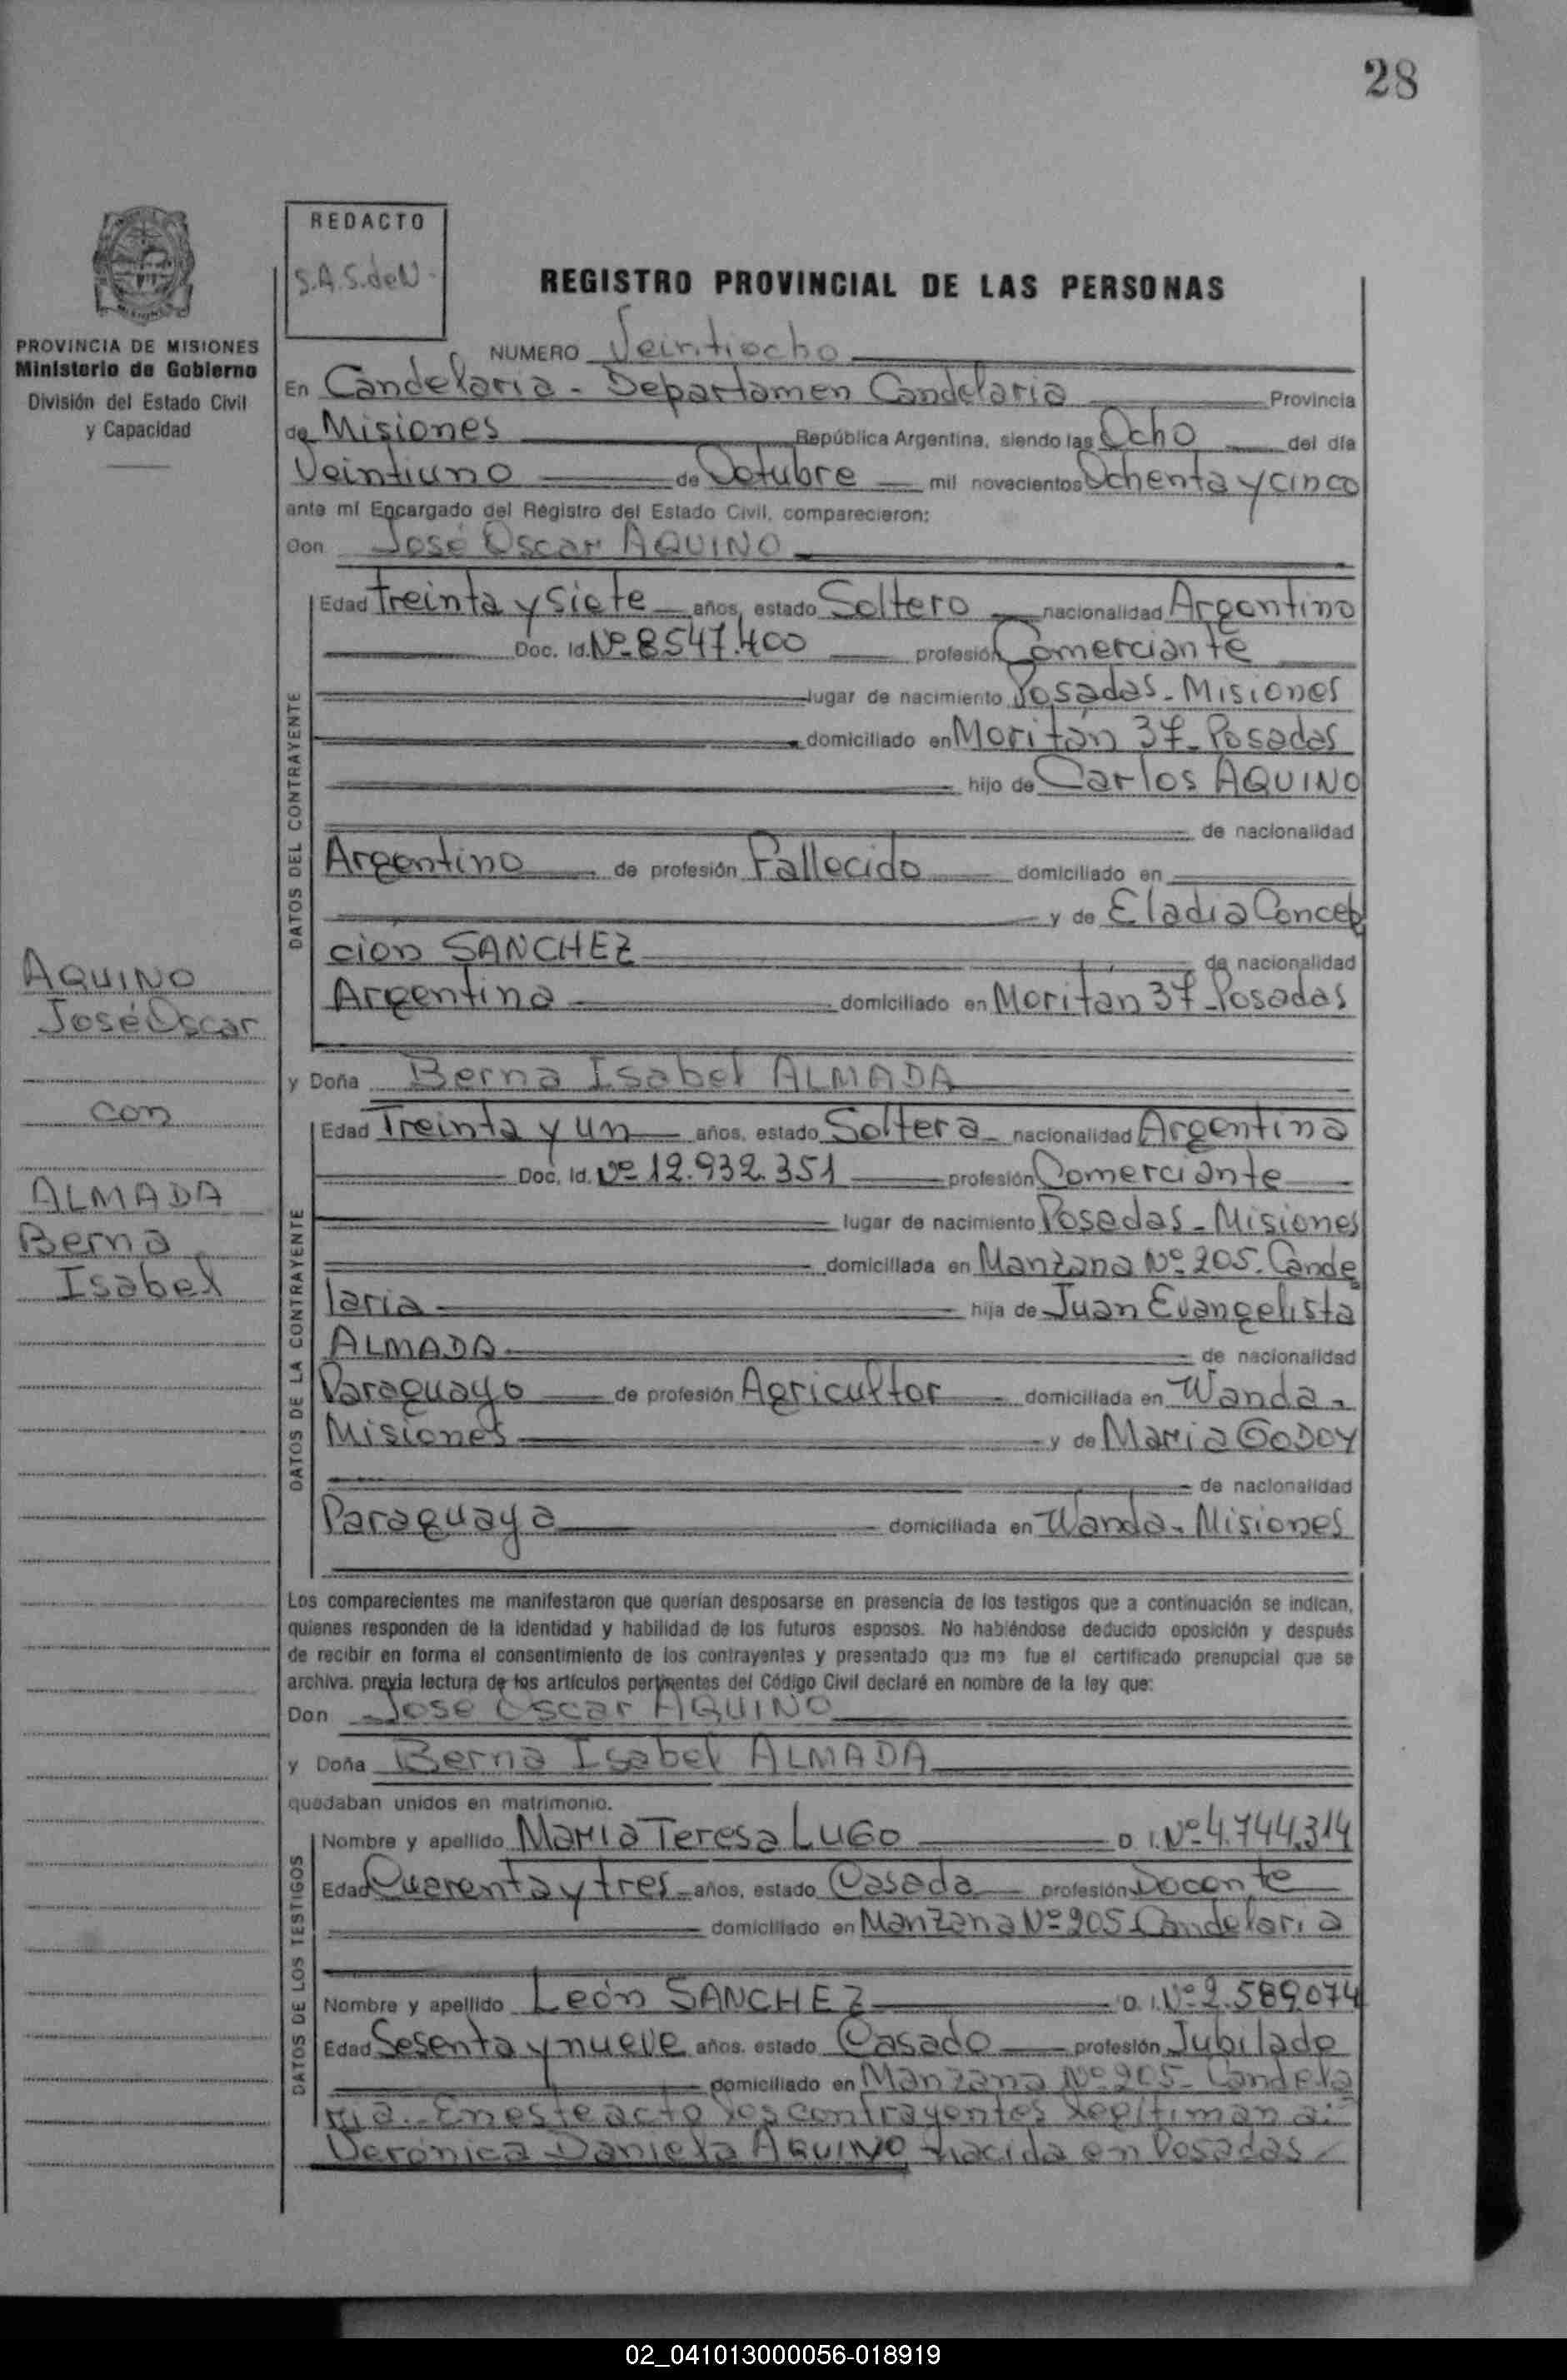 28
REDACTO
S.A.S.deN.
PROVINCIA DE MISIONES
Ministerio de Gobierno
División del Estado Civil
y Capacidad
REGISTRO PROVINCIAL DE LAS PERSONAS
NUMERO Veintiocho
En Candelaria - Departamen Candelaria Provincia
de Misiones República Argentina, siendo las Ocho del día
Veintiuno de Octubre mil novecientos Ochenta y cinco
ante mí Encargado del Registro del Estado Civil, comparecieron:
Don José Oscar AQUINO
DATOS DEL CONTRAYENTE
Edad treinta y siete años, estado Soltero nacionalidad Argentino
Doc. Id. Nº 8547.400 profesión Comerciante
lugar de nacimiento Posadas - Misiones
domiciliado en Moritán 37 - Posadas
hijo de Carlos AQUINO
de nacionalidad
Argentino de profesión Fallecido domiciliado en
y de Eladia Concep
ción SANCHEZ de nacionalidad
Argentina domiciliado en Moritán 37 - Posadas
y Doña Berna Isabel ALMADA
DATOS DE LA CONTRAYENTE
Edad Treinta y un años, estado Soltera nacionalidad Argentina
Doc. Id. Nº 12.932.351 profesión Comerciante
lugar de nacimiento Posadas - Misiones
domiciliada en Manzana Nº 205. Cande
laria hija de Juan Evangelista
ALMADA de nacionalidad
Paraguayo de profesión Agricultor domiciliada en Wanda -
Misiones y de Maria GODOY
de nacionalidad
Paraguaya domiciliada en Wanda - Misiones
AQUINO
José Oscar
con
ALMADA
Berna
Isabel
Los comparecientes me manifestaron que querían desposarse en presencia de los testigos que a continuación se indican,
quienes responden de la identidad y habilidad de los futuros esposos. No habiéndose deducido oposición y después
de recibir en forma el consentimiento de los contrayentes y presentado que me fue el certificado prenupcial que se
archiva, previa lectura de los artículos pertinentes del Código Civil declaré en nombre de la ley que:
Don José Oscar AQUINO
y Doña Berna Isabel ALMADA
quedaban unidos en matrimonio.
DATOS DE LOS TESTIGOS
Nombre y apellido Maria Teresa LUGO D. I. Nº 4.744.314
Edad Cuarenta y tres años, estado Casada profesión Docente
domiciliado en Manzana Nº 205 - Candelaria
Nombre y apellido León SANCHEZ D. I. Nº 2.589.074
Edad Sesenta y nueve años, estado Casado profesión Jubilado
domiciliado en Manzana Nº 205 - Candela
ria. En este acto los contrayentes legitiman a:
Verónica Daniela AQUINO nacida en Posadas
02_041013000056-018919